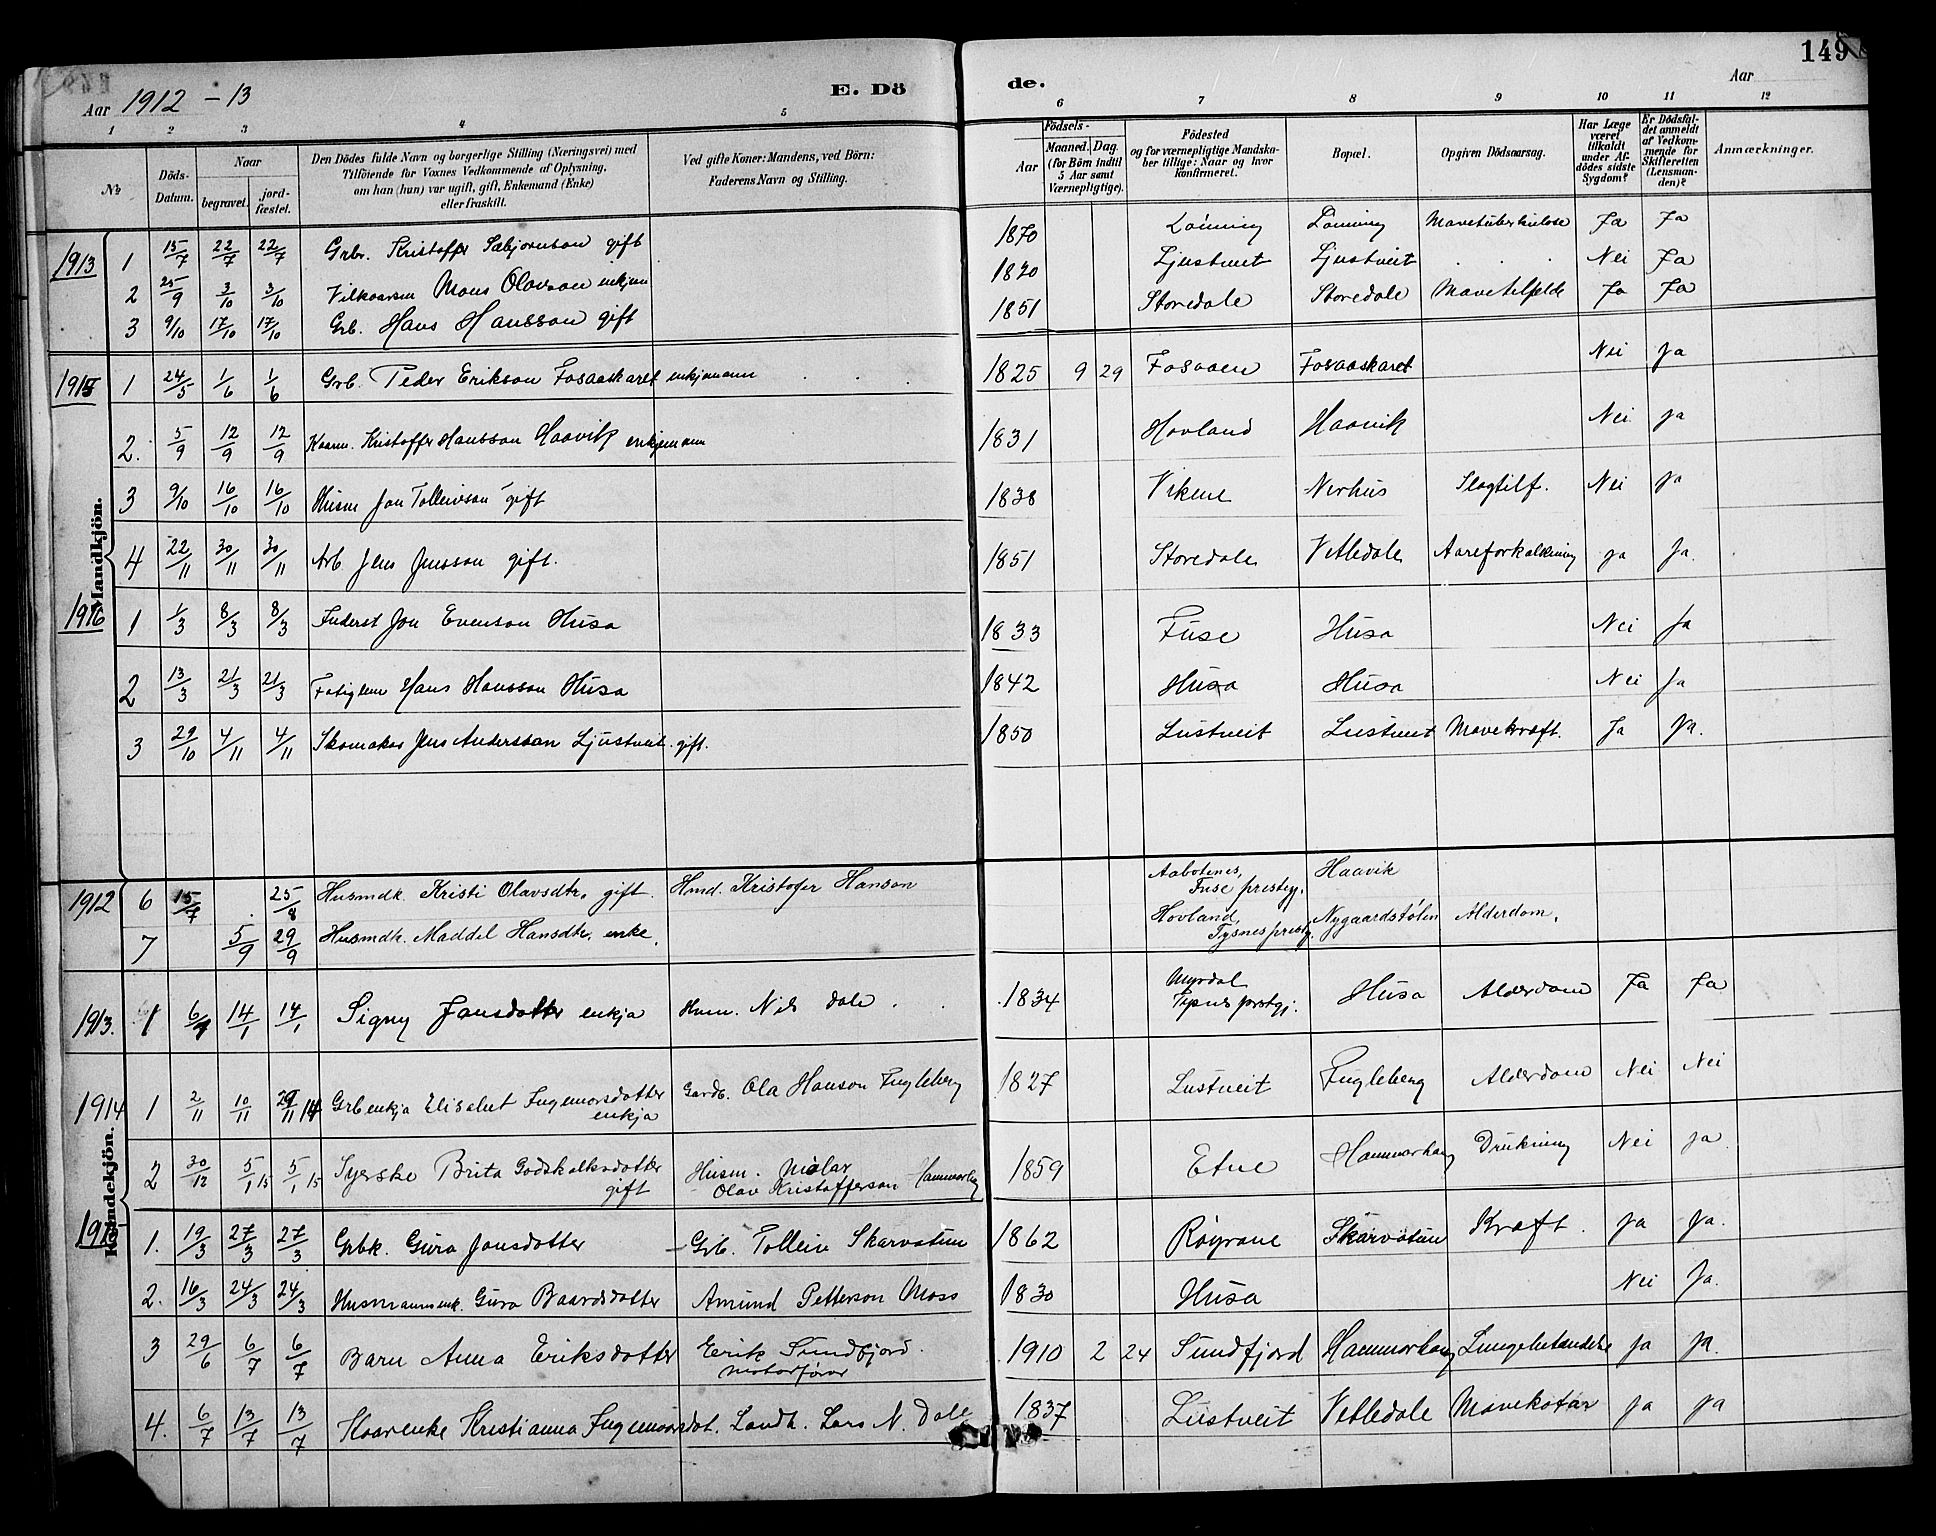 149
Aar 1912 - 13
E. Dö
de.
Aar
1 2 3 4 5 6 7 8 9 10 11 12
No
Döds-Datum.
Naar
begravet.
jord-fæstet.
Den Dödes fulde Navn og borgerlige Stilling (Næringsvei) med
Tilföiende for Voxnes Vedkommende af Oplysning,
om han (hun) var ugift, gift, Enkemand (Enke)
eller fraskilt.
Ved gifte Koner: Mandens, ved Börn:
Faderens Navn og Stilling.
Födsels-
Aar
Maaned.
Dag.
(for Börn indtil
5 Aar samt
Værnepligtige).
Födested
og for værnepligtige Mandska-
ber tillige: Naar og hvor
konfirmeret.
Bopæl.
Opgiven Dödsaarsag.
Har Læge
været
tilkaldt
under Af-
dödes sidste
Sygdom?
Er Dödsfal-
det anmeldt
af Vedkom-
mende for
Skifteretten
(Lensman-
den)?
Anmærkninger.
Mandkjön.
1913 1 15/7 22/7 22/7 Grbr. Kristoffer Sæbjørnson gift 1870 Lønning Lønning Mavetuberkulose Ja Ja
2 25/9 3/10 3/10 Vilkaarsm Mons Olavson enkjem 1820 Ljustveit Ljustveit . . . Nei Ja
3 9/10 17/10 17/10 Grb. Hans Hansson gift 1851 Storedale Storedale Mavetilfelde Ja Ja
1915 1 24/5 1/6 1/6 Grb. Peder Erikson Fosaaskaret enkjemann . . . 1825 9 29 Fosaaen Fosaaskaret Nei Ja
2. 5/9 12/9 12/9 Kaarm. Kristoffer Hansson Haavik enkjemann 1831 Hovland Haavik Nei Ja
3 9/10 16/10 16/10 Husm Jon Tolleivson gift 1838 Vikene Nerhus Slagtilf. Nei Ja
4 22/11 30/11 30/11 Arb Jens Jensson gift. 1851 Storedale Vetledale Aareforkalkning ja Ja.
1916 1 1/3 8/3 8/3 Inderst Jon Evenson Husa 1833 Fuse Husa Nei Ja
2 13/3 21/3 21/3 Fatiglem Hans Hansson Husa 1842 Husa Husa Nei Ja
3 29/10 4/11 4/11 Skomaker Jens Andersson Ljustveit. gift. 1850 Lustveit Lustveit Mavekræft. Ja Ja.
Kvindekjön.
1912 6 15/7 25/8 Husmdk. Kristi Olavsdtr. gift. Hmd. Kristofer Hanson Aabotenes, Fuse prestegj. Haavik
7 5/9 29/9 Husmdk. Maddel Hansdtr. enke. Hovland, Tysnes prestgj. Nygaardstølen Alderdom.
1913. 1 6/1 14/1 14/1 Signy Jonsdotter enkja Husm. Nils Dale . . 1834 Myrdal Tysnes prstgj. Husa Alderdom Ja Ja
1914 1 2/11 10/11 29/11 14 Grbenkja Elisabet Ingemorsdotter enkja Gardb. Ola Hanson Fugleberg 1827 Lustveit Fugleberg Alderdom Nei Nei
2 30/12 5/1 15 5/1 15 Syerske Brita Godskalksdotter gift Husm. Malar Olav Kristofferson Hammerhaug 1859 Etne Hammerhaug Drukning Nei Ja
1915 1. 19/3 27/3 27/3 Grbk. Guro Jonsdotter Grb. Tolleiv Skarvatun 1862 Røyrane Skarvatun Kræft. Ja Ja.
2. 16/3 24/3 24/3 Husmannsenk. Guro Baardsdotter Amund Petterson Moss 1830 Husa Nei Ja.
3 29/6 6/7 6/7 Barn Anna Eriksdotter Erik Sundfjord. motorfører 1910 2 24 Sundfjord Hammerhaug Lungebetændelse Ja Ja.
4. 6/7 13/7 13/7 Kaarenke Kristianna Ingemorsdot. Landh. Lars N. Dale 1837 Lustveit Vetledale Mavekatar Ja Ja